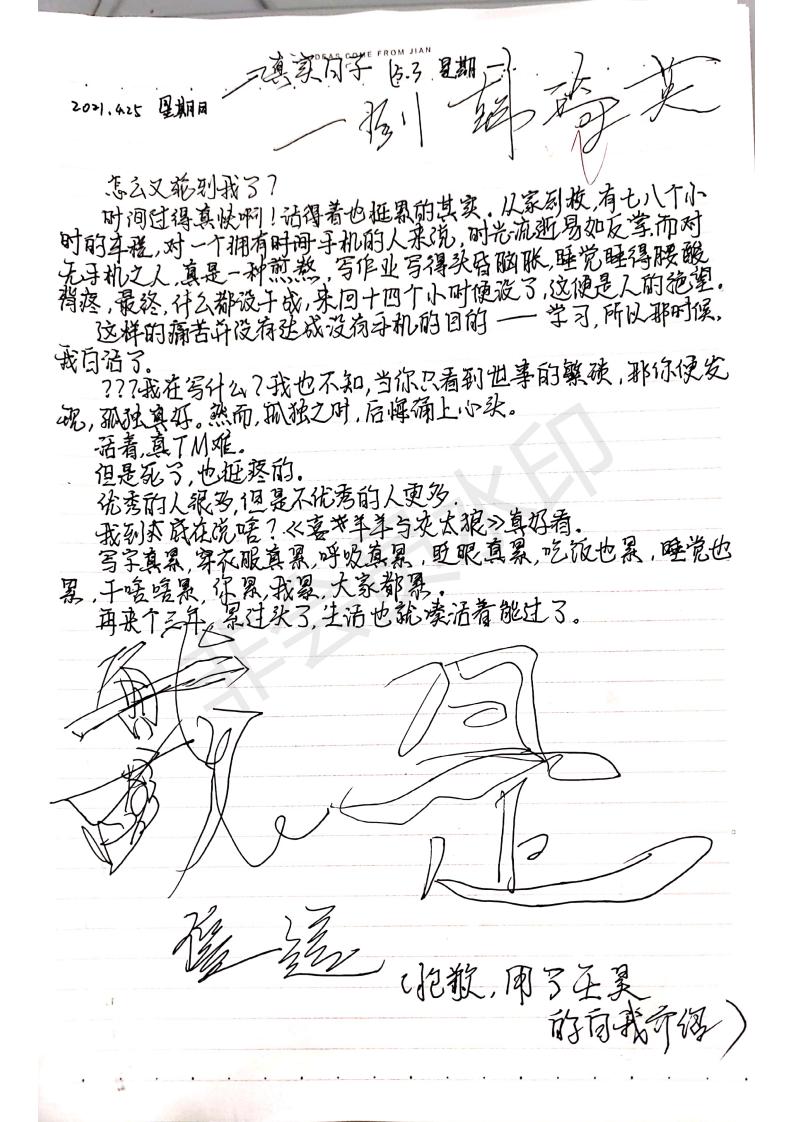 IDEAS COME FROM JIAN
真实日子 5.3 星期一
2021.4.25 星期日
韩 英
怎么又轮到我了?
时间过得真快啊!活得着也挺累的其实.从家到校,有七八个小
时的车程,对一个拥有时间手机的人来说,时光流逝易如反掌,而对
无手机之人,真是一种煎熬,写作业写得头昏脑胀,睡觉睡得腰酸
背疼,最终,什么都没干成,来回十四个小时便没了,这便是人的绝望。
这样的痛苦并没有达成没有手机的目的——学习,所以那时候,
我白活了.
???我在写什么?我也不知,当你只看到世事的繁琐,那你便发
现,孤独真好。然而,孤独之时,后悔涌上心头。
活着,真TM难.
但是死了,也挺疼的.
优秀的人很多,但是不优秀的人更多.
我到底在说啥?《喜羊羊与灰太狼》真好看.
写字真累,穿衣服真累,呼吸真累,眨眼真累,吃饭也累,睡觉也
累,干啥啥累,你累,我累,大家都累.
再来个三年,累过头了,生活也就凑活着能过了。
是
(抱歉,用了王昊
的自我介绍)
非会员水印